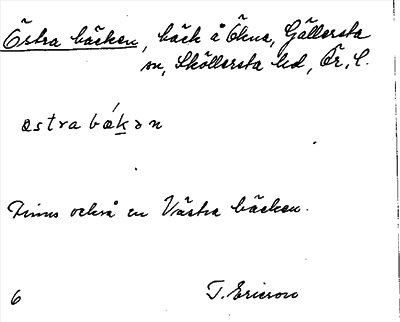 Östra bäcken, bäck å Ökna, Gällersta
sn, Sköllersta hd, Ör. l.
östra bækən
Finns också en Västra bäcken.
6 T. Ericson